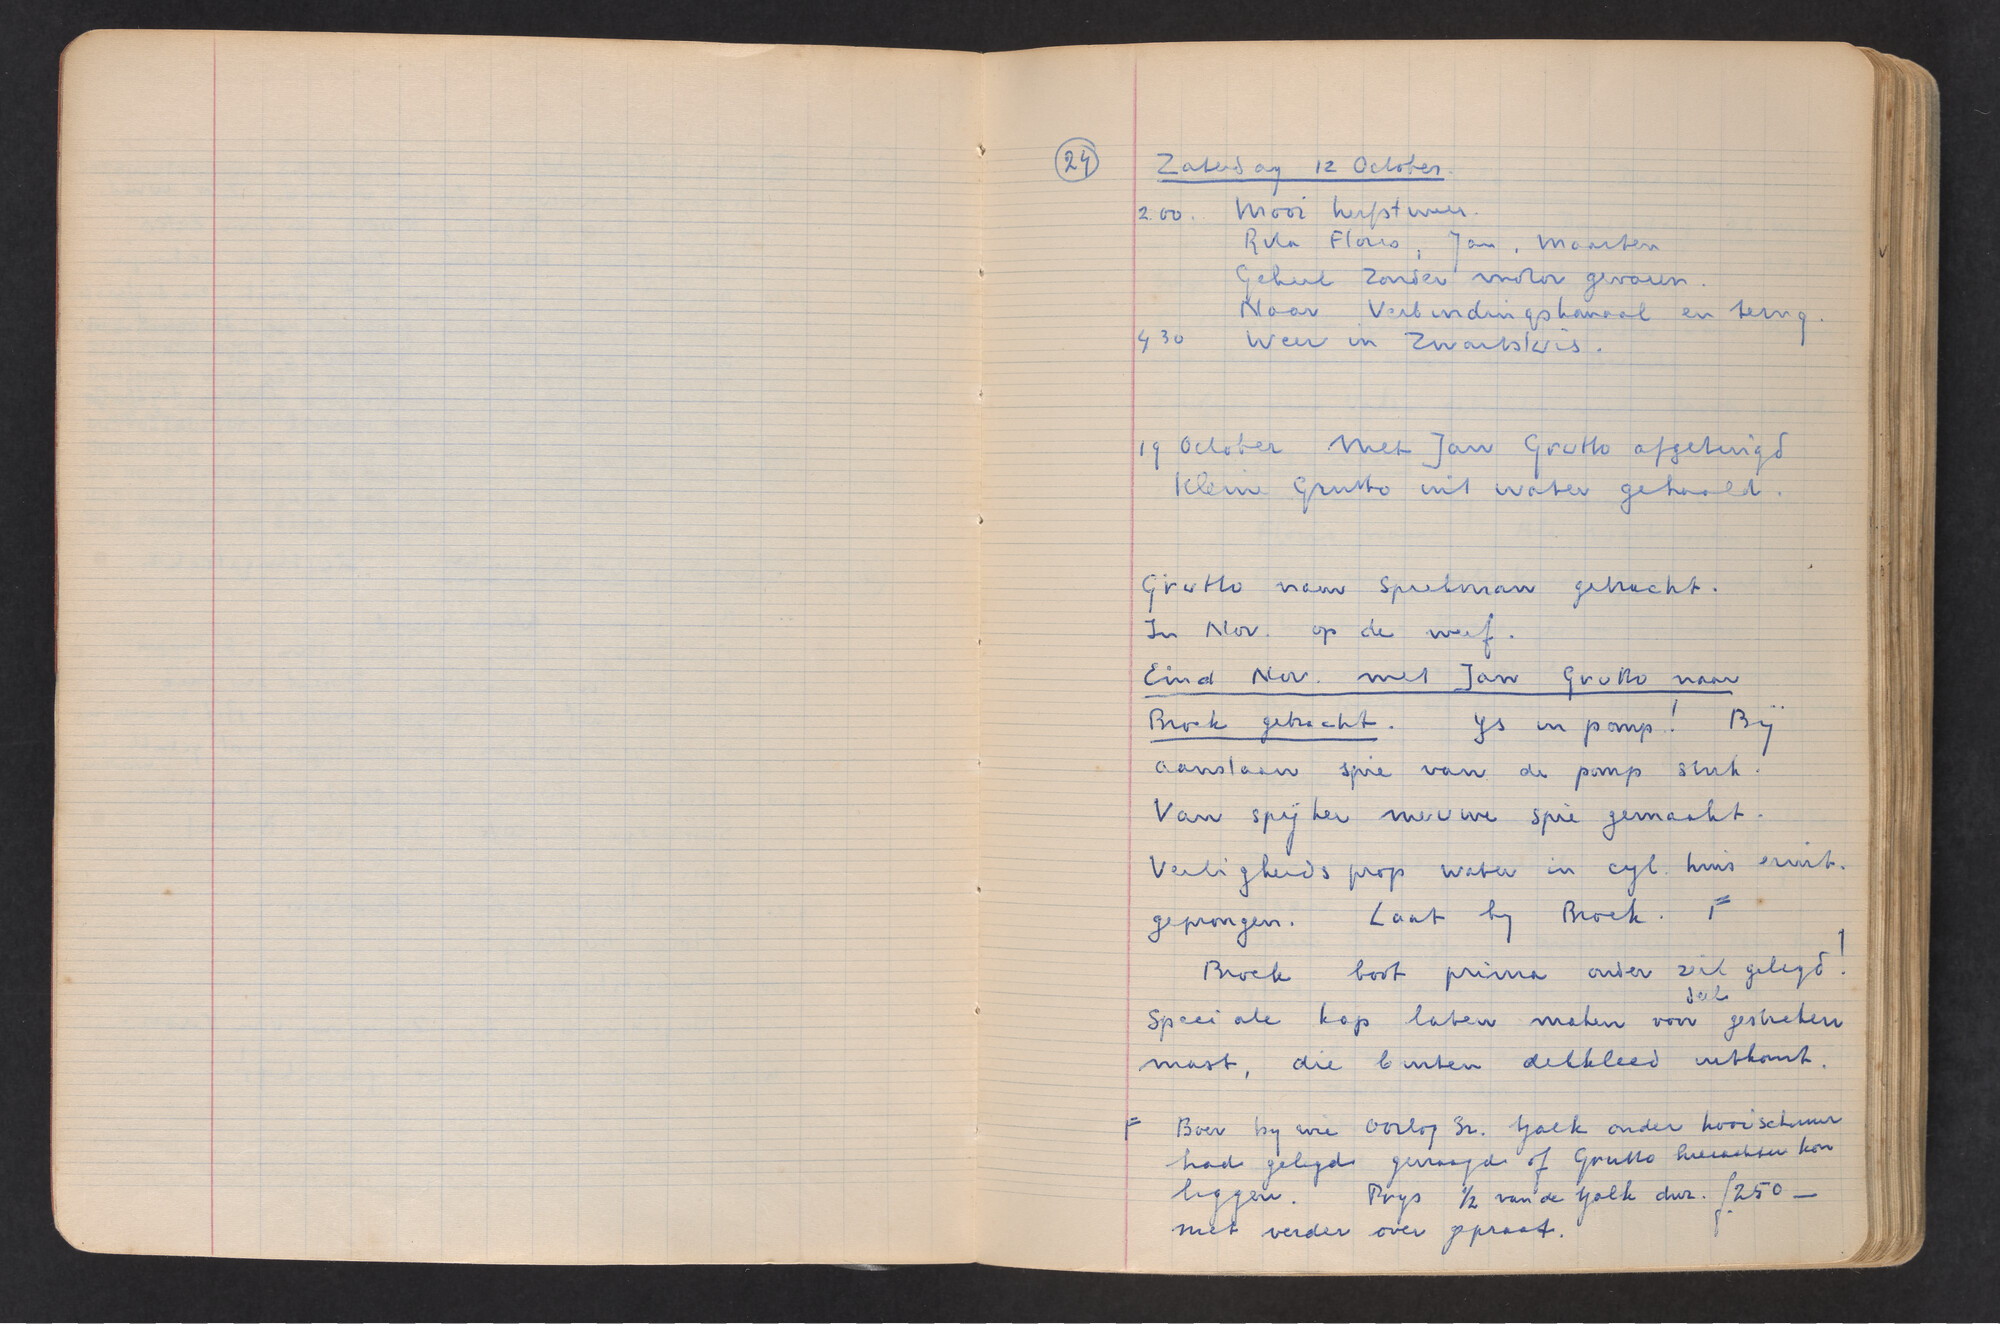 24 Zaterdag 12 October.
2.00. Mooi herfstweer.
Rita Floris, Jan, Maarten
Geheel zonder motor gevaren.
Naar Verbindingskanaal en terug.
4 30 Weer in Zwartsluis.
19 October Met Jan Grutto afgetuigd
Klein Grutto uit water gehaald.
Grutto naar Spielman gebracht.
In Nov. op de werf.
Eind Nov. met Jan Grutto naar
Broek gebracht. Ys in pomp! Bij
aanslaan spie van de pomp stuk.
Van spijker nieuwe spie gemaakt.
Veiligheids prop water in cyl. huis eruit.
gesprongen. Laat by Broek. F
Broek boot prima onder zeil gelegd!
Speciale kap laten maken voor dek gestreken
mast, die buiten dekkleed uitkomt.
F Boer by wie Oorlog Sr. tjalk onder hooischuur
had gelegd gevraagd of Grutto hierachter kon
liggen. Prys 1/2 van de tjalk dwz. f 250 —
niet verder over gepraat.